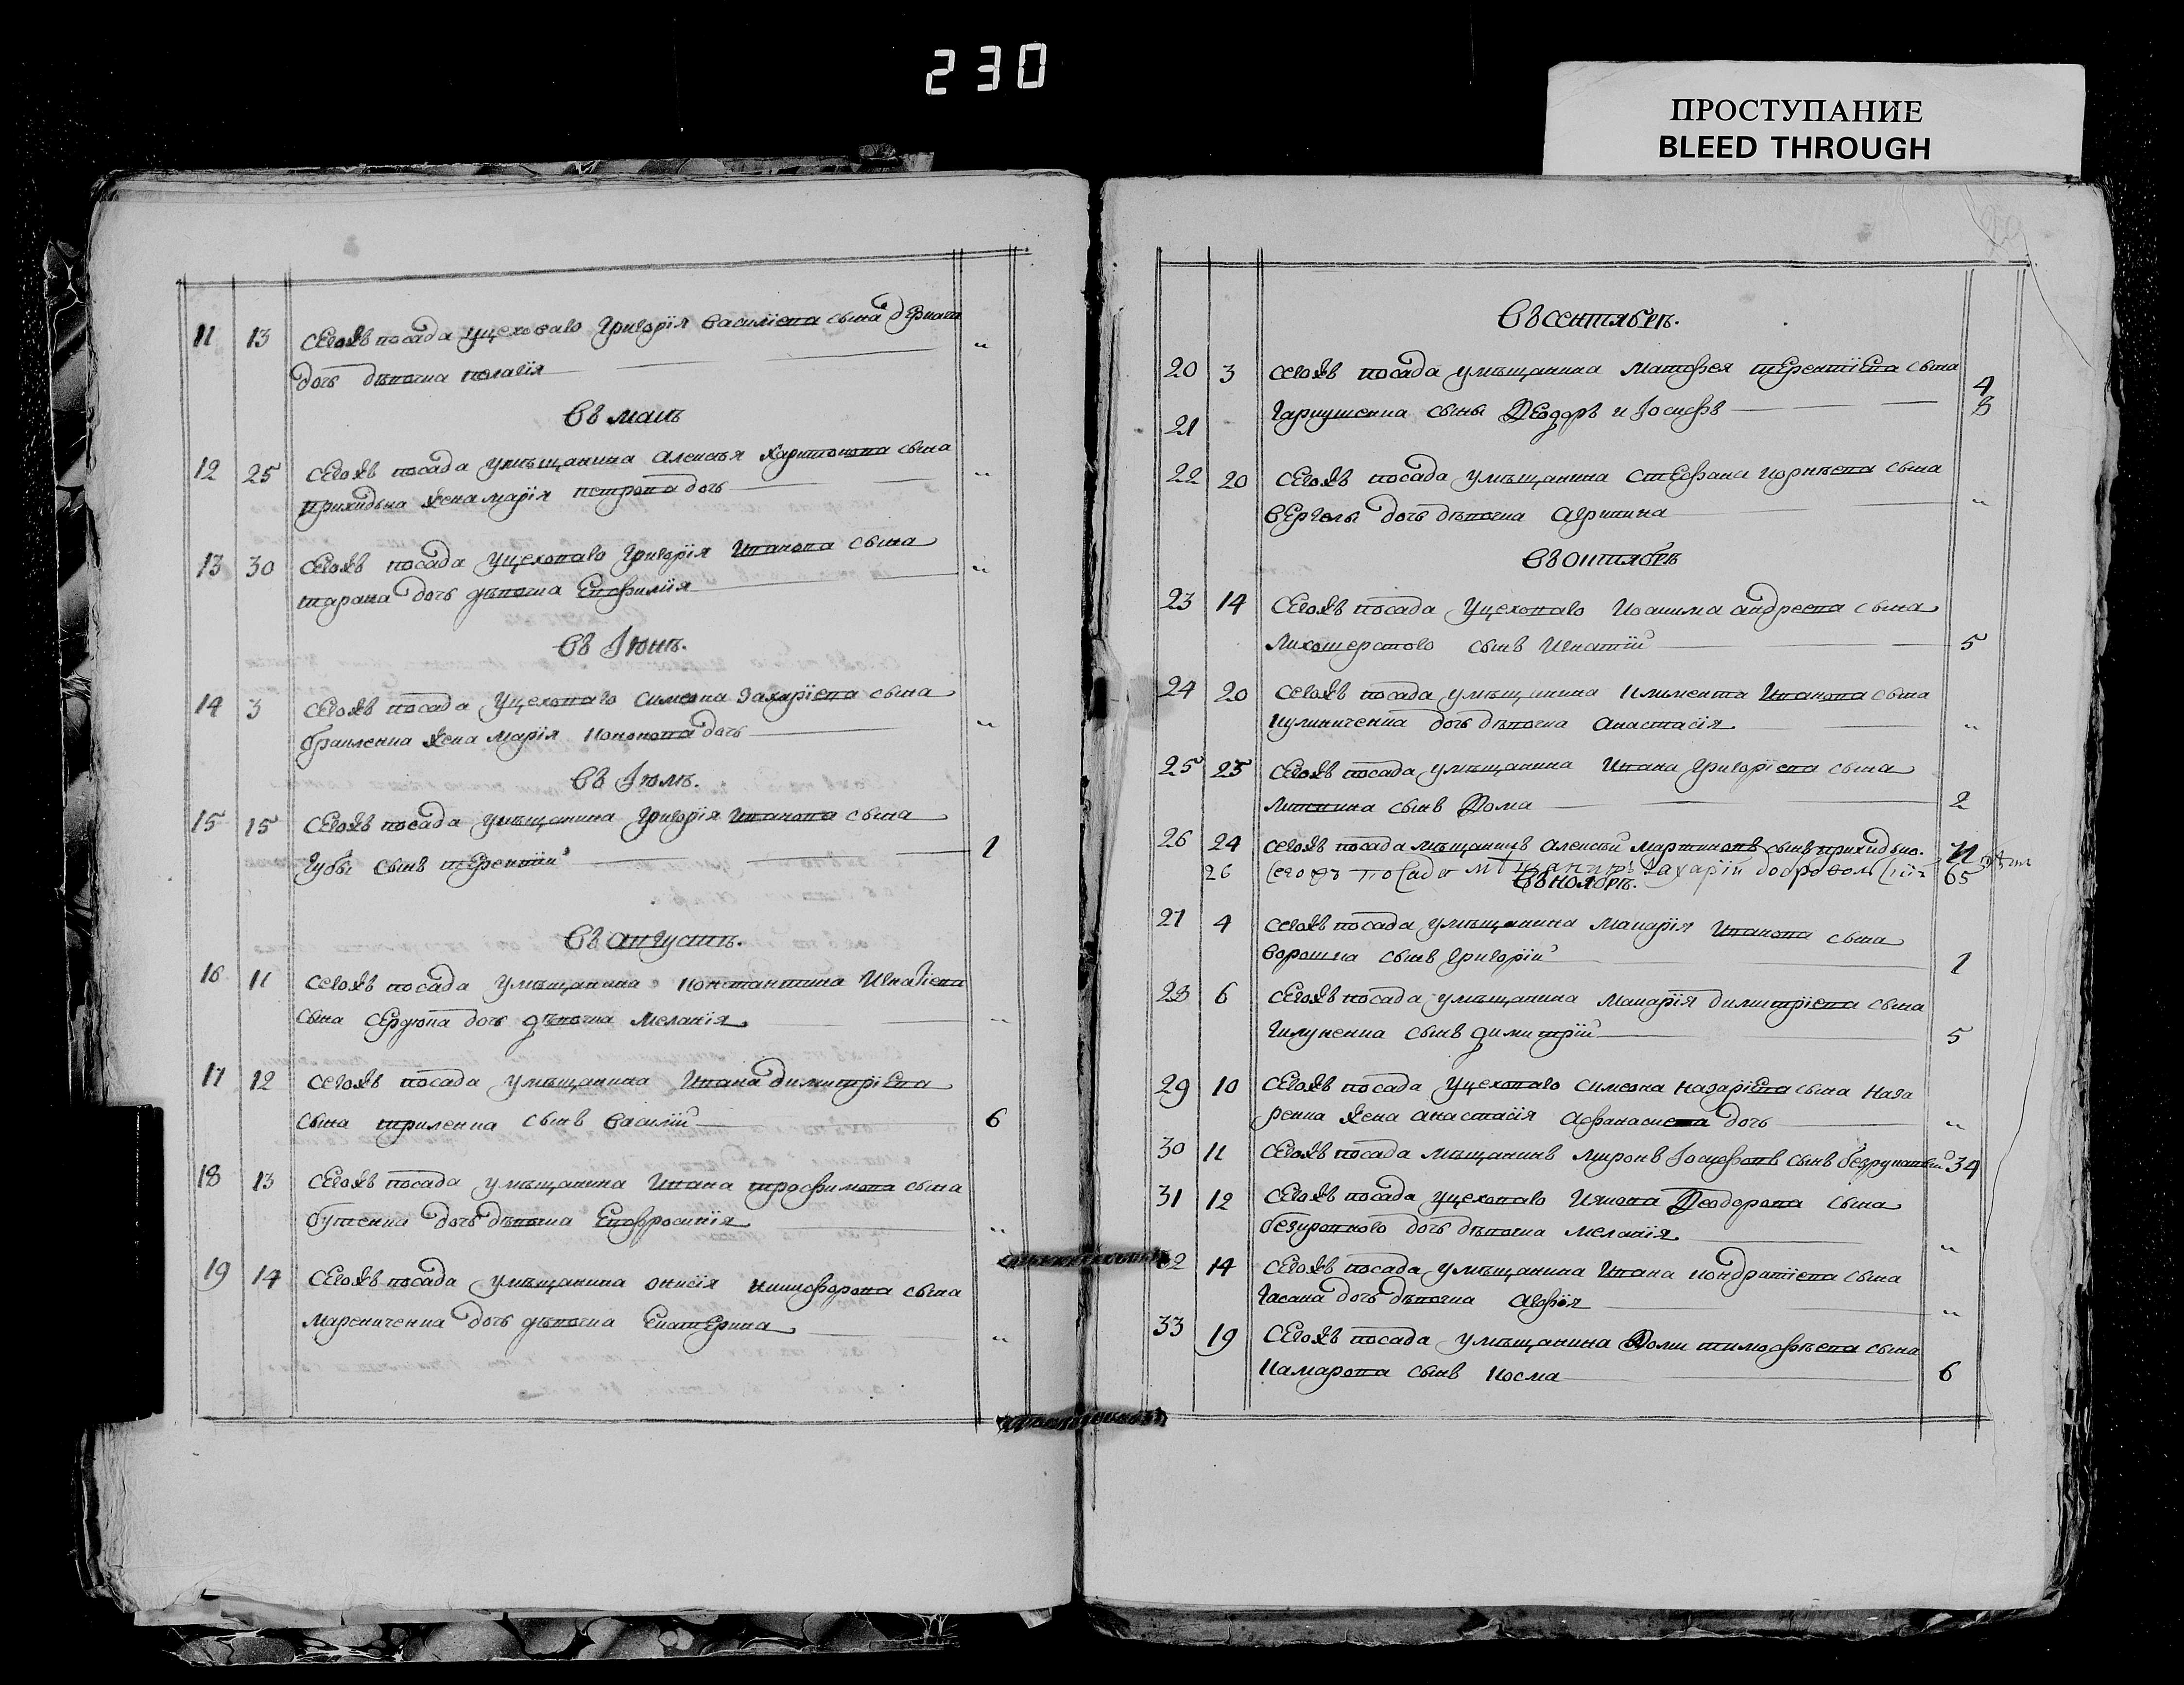 230
ПРОСТУПАНИЕ
BLEED THROUGH
11 13 сегожъ посада у цеховаго григорїя василїева сына
дочъ дѣвочка пелагїя "
въ маиѣ
12 25 сегожъ посада у мѣщанина алексѣя харитонова сына
прихидька жена марїя петрова дочъ "
13 30 сегожъ посада у цеховаго григорїя иванова сына
тарана дочъ дѣвочка евфимїя "
въ Іюнѣ.
14 3 сегожъ посада у цеховаго симеона захарїева сына
жена марїя кононова дочъ "
въ Іюлѣ.
15 15 сегожъ посада у мѣщанина григорїя иванова сына
губы сынъ терентїй 1
въ августѣ.
16 11 сегожъ посада у мѣщанина константина игнатїева
сына сердюка дочъ дѣвочка меланїя "
17 12 сегожъ посада у мѣщанина ивана димитрїева
сына сынъ василїй 6
18 13 сегожъ посада у мѣщанина ивана трофимова сына
бутенка дочъ дѣвочка евфросинїя "
19 14 сегожъ посада у мѣщанина онисїя никифорова сына
марениченка дочъ дѣвочка екатерина "
въ сентябрѣ.
20 3 сегожъ посада у мѣщанина матфея терентїева сына 4
21 гаркушенка сыны Ѳеодоръ и Іосифъ 3
22 20 сегожъ посада у мѣщанина стефана корнѣева сына
верголы дочъ дѣвочка агрипина "
въ октябрѣ
23 14 сегожъ посада у цеховаго иоакима андреева сына
лихошерстого сынъ игнатїй 5
24 20 сегожъ посада у мѣщанина климента иванова сына
кулиниченка дочъ дѣвочка анастасїя "
25 23 сегожъ посада у мѣщанина ивана григорїева сына
литвина сынъ Ѳома 2
26 24 сегожъ посада мѣщанинъ алексѣй мартиновъ сынъ прихидько.
26 сегожъ посада мѣщанинъ захарїй 65
въ ноябрѣ.
27 4 сегожъ посада у мѣщанина макарїя иванова сына
ворошка сынъ григорїй 1
28 6 сегожъ посада у мѣщанина макарїя димитрїева сына
сынъ димитрїй 5
29 10 сегожъ посада у цеховаго симеона назарїева сына наза
ренка жена анастасїя афанасиева дочъ "
30 11 сегожъ посада мѣщанинъ миронъ Іосифовъ сынъ безрукавый 34
31 12 сегожъ посада у цеховаго иякова Ѳеодорова сына
безкровного дочъ дѣвочка меланїя "
32 14 сегожъ посада у мѣщанина ивана кондратїева сына
гасана дочъ дѣвочка агафїя "
33 19 сегожъ посада у мѣщанина Ѳомы тимофѣева сына
камарова сынъ косма 6